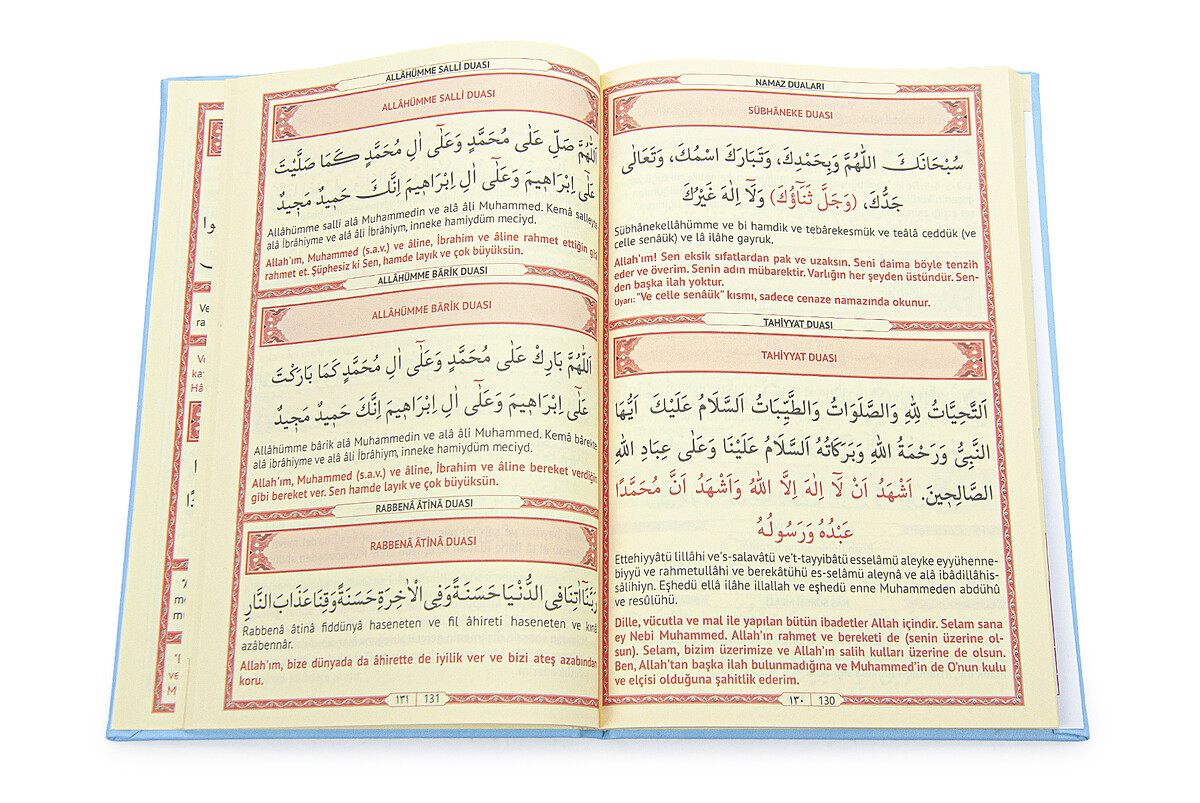 NAMAZ DUALARI
SÜBHÂNEKE DUASI
سُبْحَانَكَ اللّٰهُمَّ وَبِحَمْدِكَ، وَتَبَارَكَ اسْمُكَ، وَتَعَالٰى
جَدُّكَ، (وَجَلَّ ثَنَٓاؤُكَ) وَلَٓا اِلٰهَ غَيْرُكَ
Sübhânekellâhümme ve bi hamdik ve tebârekesmük ve teâlâ ceddük (ve
celle senâük) ve lâ ilâhe gayruk.
Allah'ım! Sen eksik sıfatlardan pak ve uzaksın. Seni daima böyle tenzih
eder ve överim. Senin adın mübarektir. Varlığın her şeyden üstündür. Sen-
den başka ilah yoktur.
Uyarı: "Ve celle senâük" kısmı, sadece cenaze namazında okunur.
TAHİYYAT DUASI
TAHİYYAT DUASI
اَلتَّحِيَّاتُ لِلّٰهِ وَالصَّلَوَاتُ وَالطَّيِّبَاتُ اَلسَّلَامُ عَلَيْكَ اَيُّهَا
النَّبِيُّ وَرَحْمَةُ اللّٰهِ وَبَرَكَاتُهُ اَلسَّلَامُ عَلَيْنَا وَعَلٰى عِبَادِ اللّٰهِ
الصَّالِحٖينَ. اَشْهَدُ اَنْ لَٓا اِلٰهَ اِلَّا اللّٰهُ وَاَشْهَدُ اَنَّ مُحَمَّدًا
عَبْدُهُ وَرَسُولُهُ
Ettehiyyâtü lillâhi ve's-salavâtü ve't-tayyibâtü esselâmü aleyke eyyühenne-
biyyü ve rahmetullâhi ve berekâtühü es-selâmü aleynâ ve alâ ibâdillâhis-
sâlihiyn. Eşhedü ellâ ilâhe illallah ve eşhedü enne Muhammeden abdühû
ve resûlühü.
Dille, vücutla ve mal ile yapılan bütün ibadetler Allah içindir. Selam sana
ey Nebi Muhammed. Allah'ın rahmet ve bereketi de (senin üzerine ol-
sun). Selam, bizim üzerimize ve Allah'ın salih kulları üzerine de olsun.
Ben, Allah'tan başka ilah bulunmadığına ve Muhammed'in de O'nun kulu
ve elçisi olduğuna şahitlik ederim.
١٣٠ 130
ALLÂHÜMME SALLİ DUASI
ALLÂHÜMME SALLİ DUASI
اَللّٰهُمَّ صَلِّ عَلٰى مُحَمَّدٍ وَعَلٰٓى اٰلِ مُحَمَّدٍ كَمَا صَلَّيْتَ
عَلٰٓى اِبْرَاهٖيمَ وَعَلٰٓى اٰلِ اِبْرَاهٖيمَ اِنَّكَ حَمٖيدٌ مَجٖيدٌ
Allâhümme salli alâ Muhammedin ve alâ âli Muhammed. Kemâ salleyte
alâ İbrâhiyme ve alâ âli İbrâhiym, inneke hamiydüm meciyd.
Allah'ım, Muhammed (s.a.v.) ve âline, İbrahim ve âline rahmet ettiğin gibi
rahmet et. Şüphesiz ki Sen, hamde layık ve çok büyüksün.
ALLÂHÜMME BÂRİK DUASI
ALLÂHÜMME BÂRİK DUASI
اَللّٰهُمَّ بَارِكْ عَلٰى مُحَمَّدٍ وَعَلٰٓى اٰلِ مُحَمَّدٍ كَمَا بَارَكْتَ
عَلٰٓى اِبْرَاهٖيمَ وَعَلٰٓى اٰلِ اِبْرَاهٖيمَ اِنَّكَ حَمٖيدٌ مَجٖيدٌ
Allâhümme bârik alâ Muhammedin ve alâ âli Muhammed. Kemâ bârekte
alâ ibrâhiyme ve alâ âli İbrâhiym, inneke hamiydüm meciyd.
Allah'ım, Muhammed (s.a.v.) ve âline, İbrahim ve âline bereket verdiğin
gibi bereket ver. Sen hamde layık ve çok büyüksün.
RABBENÂ ÂTİNÂ DUASI
RABBENÂ ÂTİNÂ DUASI
رَبَّنَٓا اٰتِنَا فِى الدُّنْيَا حَسَنَةً وَفِى الْاٰخِرَةِ حَسَنَةً وَقِنَا عَذَابَ النَّارِ
Rabbenâ âtinâ fiddünyâ haseneten ve fil âhireti haseneten ve kınâ
azâbennâr.
Allah'ım, bize dünyada da âhirette de iyilik ver ve bizi ateş azabından
koru.
١٣١ 131